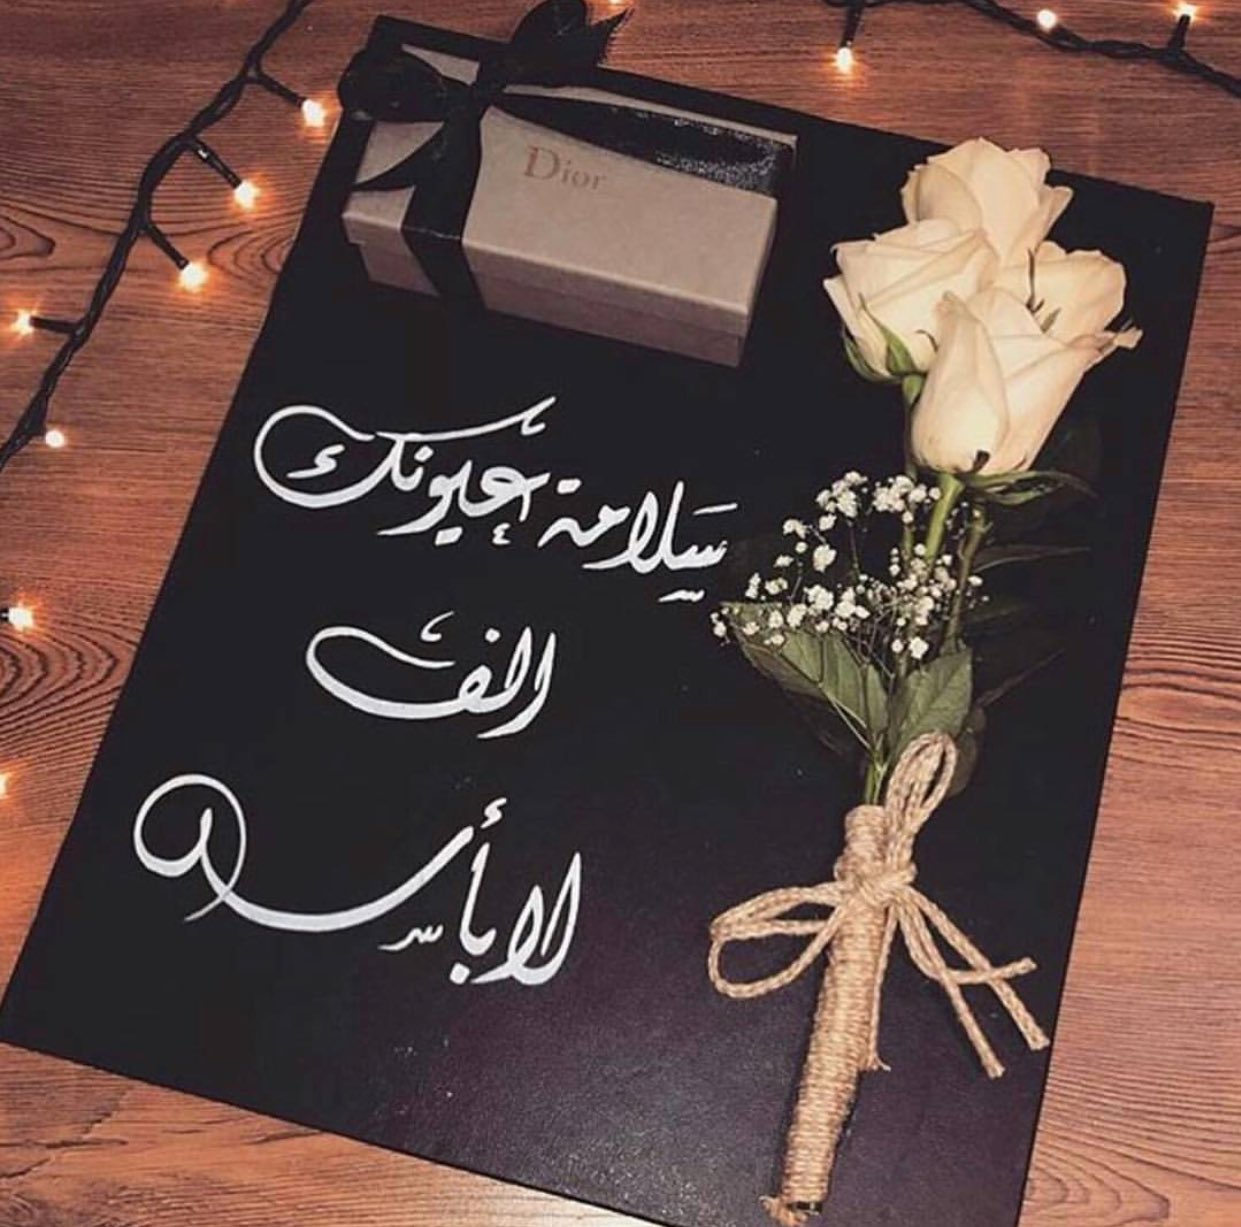 Dior
سلامة عيونك
الف
لا بأس